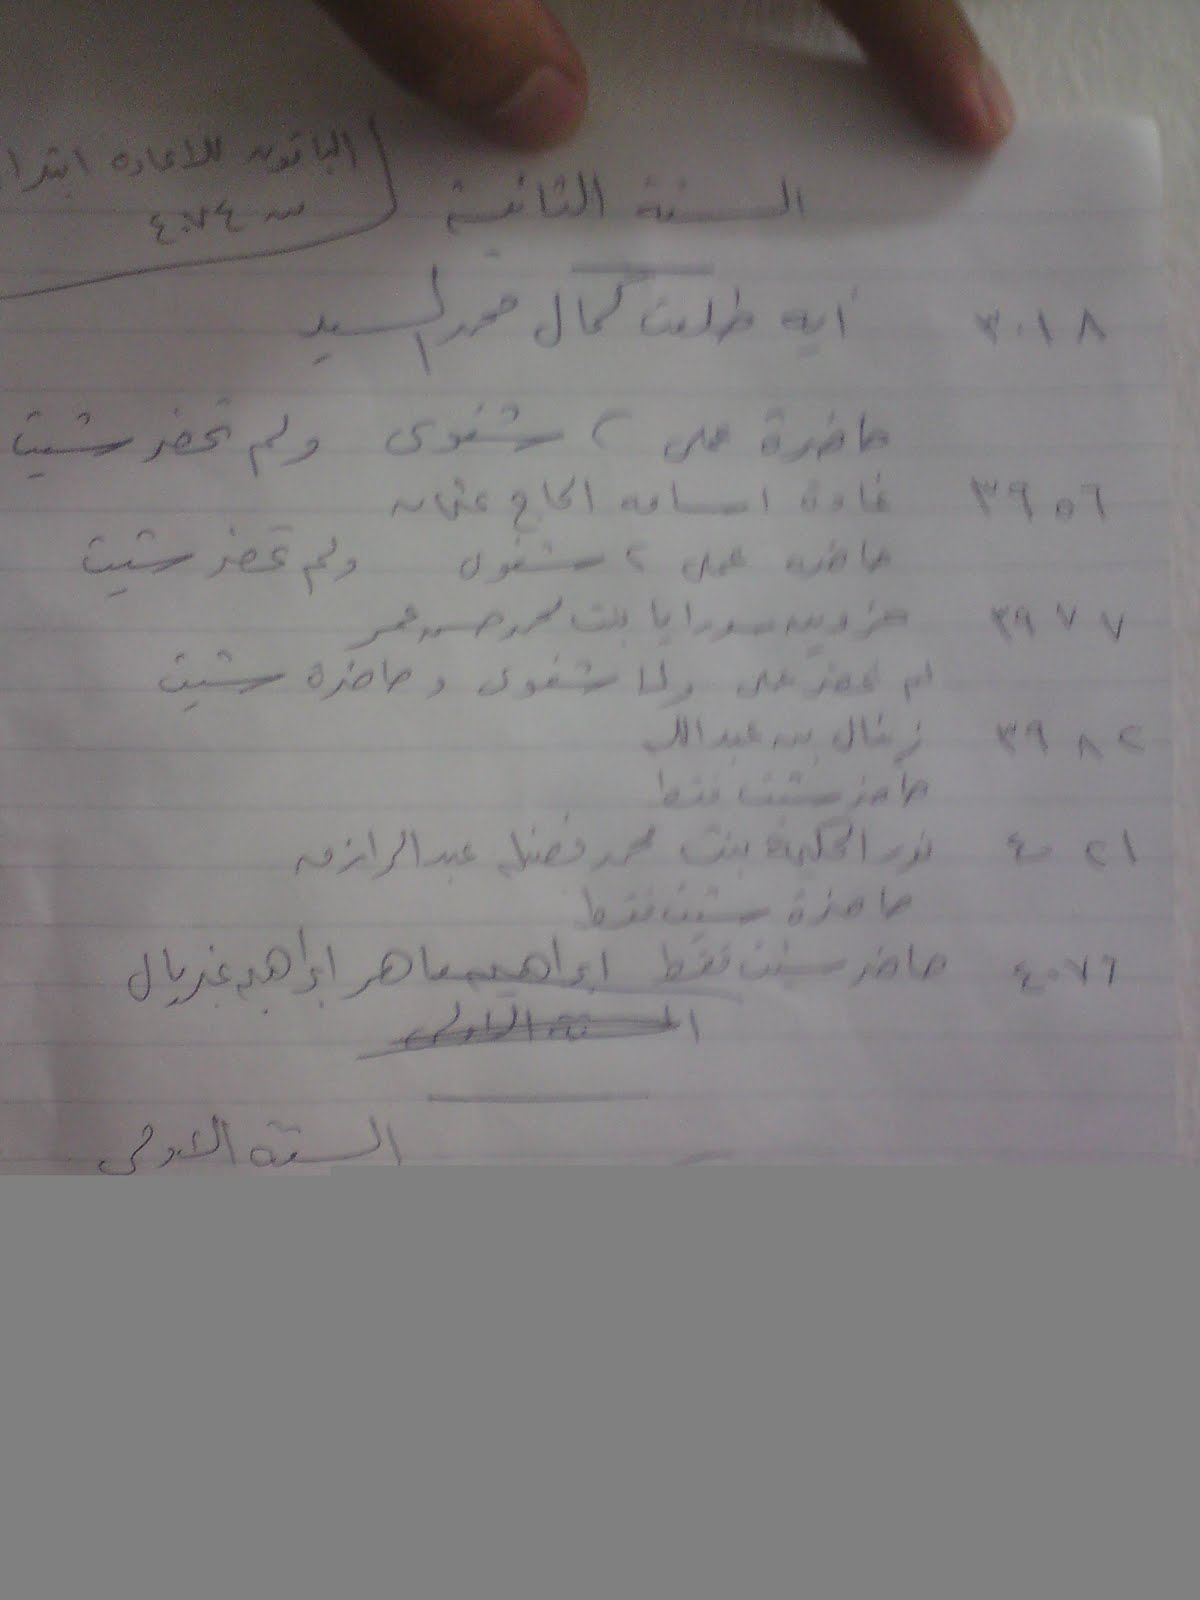 الباقون للاعادة ابتدا
من ٤٠٧٤
السنة الثانية
٣٠١٨ آية طلعت كمال محمد السيد
حاضرة عملى ٢ شفوى ولم تحضر شيت
٣٩٥٦ غادة اسامه الحاج عثمان
حاضره عملى ٢ شفوى ولم تحضر شيت
٣٩٧٧ بنت محمد حسن عمر
لم تحضر عملى ولا شفوى وحاضرة شيت
٣٩٨٢ بن عبدالله
حاضر شيت فقط
٤٠٢١ نور الحكيمة بنت محمد فضيل عبدالرازق
حاضرة شيت فقط
٤٠٧٦ حاضر شيت فقط ابراهيم ماهر ابراهيم غبريال
السنة الاولى
السنة الاولى